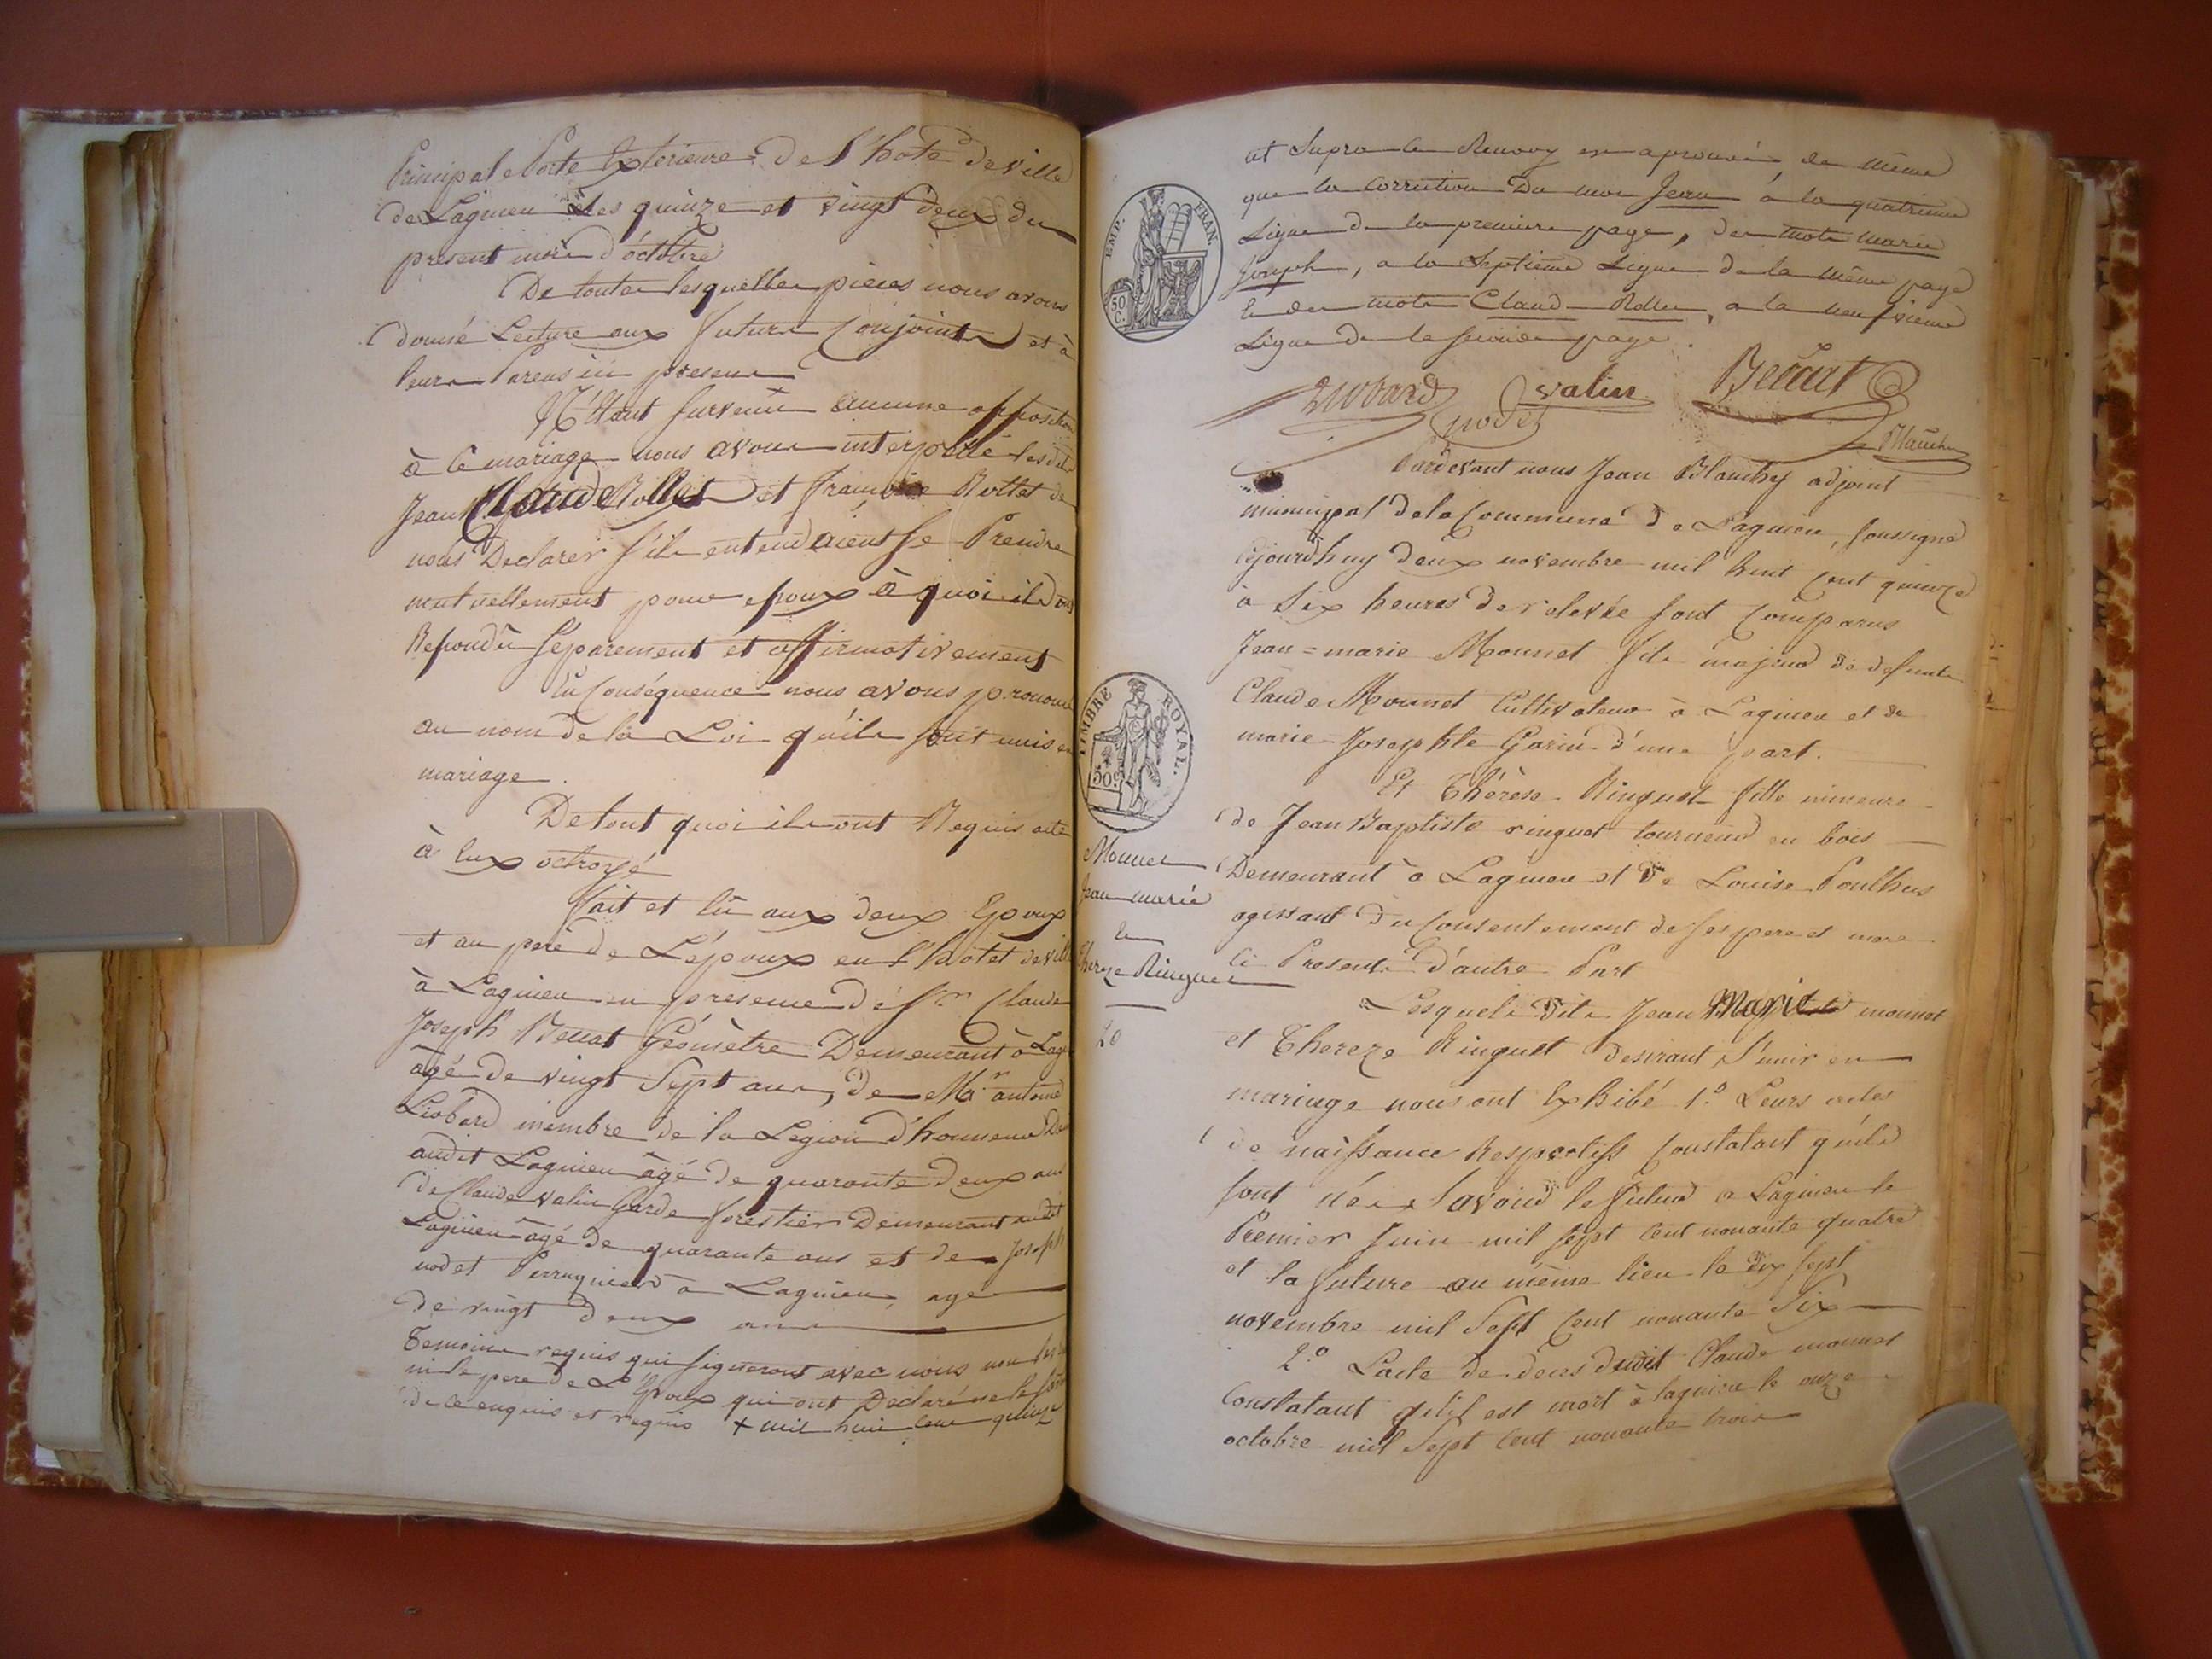 Principale Porte Exterieure De l'hotel De Ville
De Lagnieu les quinze et vingt deux du
present mois d'octobre
De toutes lesquelles pieces nous avons
donné Lecture aux futurs Conjoints et à
leurs Parens ici presens
N'étant survenu aucune opposition
à ce mariage nous avons interpellé lesdits
Jean Claude Rollet et Françoise Rollet de
nous Declarer s'ils entendaient se Prendre
mutuellement pour epoux à quoi ils ont
Repondu séparement et affirmativement
En Conséquence nous avons prononcé
au nom de la Loi qu'ils sont unis en
mariage.
De tout quoi ils ont Requis acte
à Eux octroyé
Fait et lû aux deux Epoux
et au pere de L'époux en l'hotel de ville
à Lagnieu en presence de Sr Claude
Joseph Demeurant à
âgé de vingt Sept ans, De Mr antoine
membre de la Legion d'honneur
audit Lagnieu âgé de quarante deux ans
de Claude Valin Garde forestier Demeurant audit
Lagnieu âgé de quarante ans et de Joseph
nodet Perruquier à Lagnieu, age
de vingt deux ans
Temoins requis qui signeront avec nous non les
ni le pere de L'Epoux qui ont Déclaré ne le
de ce enquis et requis + mil huit cent quinze
ut Supra le Renvoy est aprouvé, de même
que la Correction Du mot Jean à la quatrieme
Ligne de la premiere page, des mots marie
Joseph, a la Septieme Ligne de la même page
et des mots Claud Rollet, a la neufvieme
Ligne de la seconde page.
EMP. FRAN.
50 C.
nodet valin
Pardevant nous Jean Blanchy adjoint
municipal de la Commune de Lagnieu, soussigné
Cejourdhuy deux novembre mil huit cent quinze
à six heures de relevée sont Comparus
Jean=marie Monnet fils majeur de defunt
Claude Monnet Cultivateur à Lagnieu et de
marie Josephte Garin d'une part.
Et Thérèse Ringuet fille mineure
de Jean Baptiste ringuet tourneur en bois
Demeurant à Lagnieu et de Louise
agissant du Consentement de ses pere et mere
ci Presents d'autre Part
Lesquels dits Jean Marie monnet
et Thereze Ringuet desirant s'unir en
mariage nous ont Exhibé 1.º Leurs actes
de naissance Respectifs Constatant qu'ils
sont nés Savoir le futur a Lagnieu le
Premier Juin mil sept cent nonante quatre
et la future au même lieu le dix sept
novembre mil sept cent nonante six
2.º L'acte de deces dudit Claude monnet
Constatant qu'il est mort à lagnieu le onze
octobre mil sept cent nonante trois
TIMBRE ROYAL.
50c
Monnet
Jean marie
et
Thereze Ringuet
20